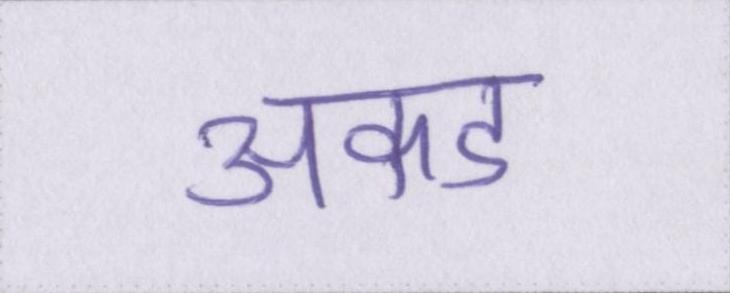 अकड